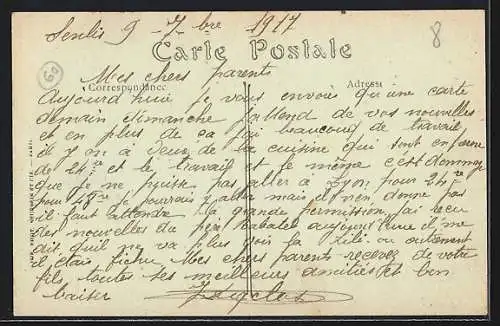 Senlis 9 - 7bre 1917
Carte Postale
Mes chers parents
Correspondance Adresse
Aujourd'huie je vous envois qu'une carte
demain dimanche j'attend de vos nouvelles
et en plus de ça j'ai beaucoup de travail
il y on a deux de la cuisine qui sont en
de 24 et le travail est le même c'est dommage
que je ne puisse pas aller à Lyon pour 24
pour 48 je pourrais y aller mais il n'en donne pas
il faut attendre la grande permission j'ai reçu
des nouvelles du aujourd'huie il me
dit qu'il ne va plus la ou autrement
il était fichu Mes chers parents recevez de votre
fils toutes ses meilleures amitiés et bon
baiser
8